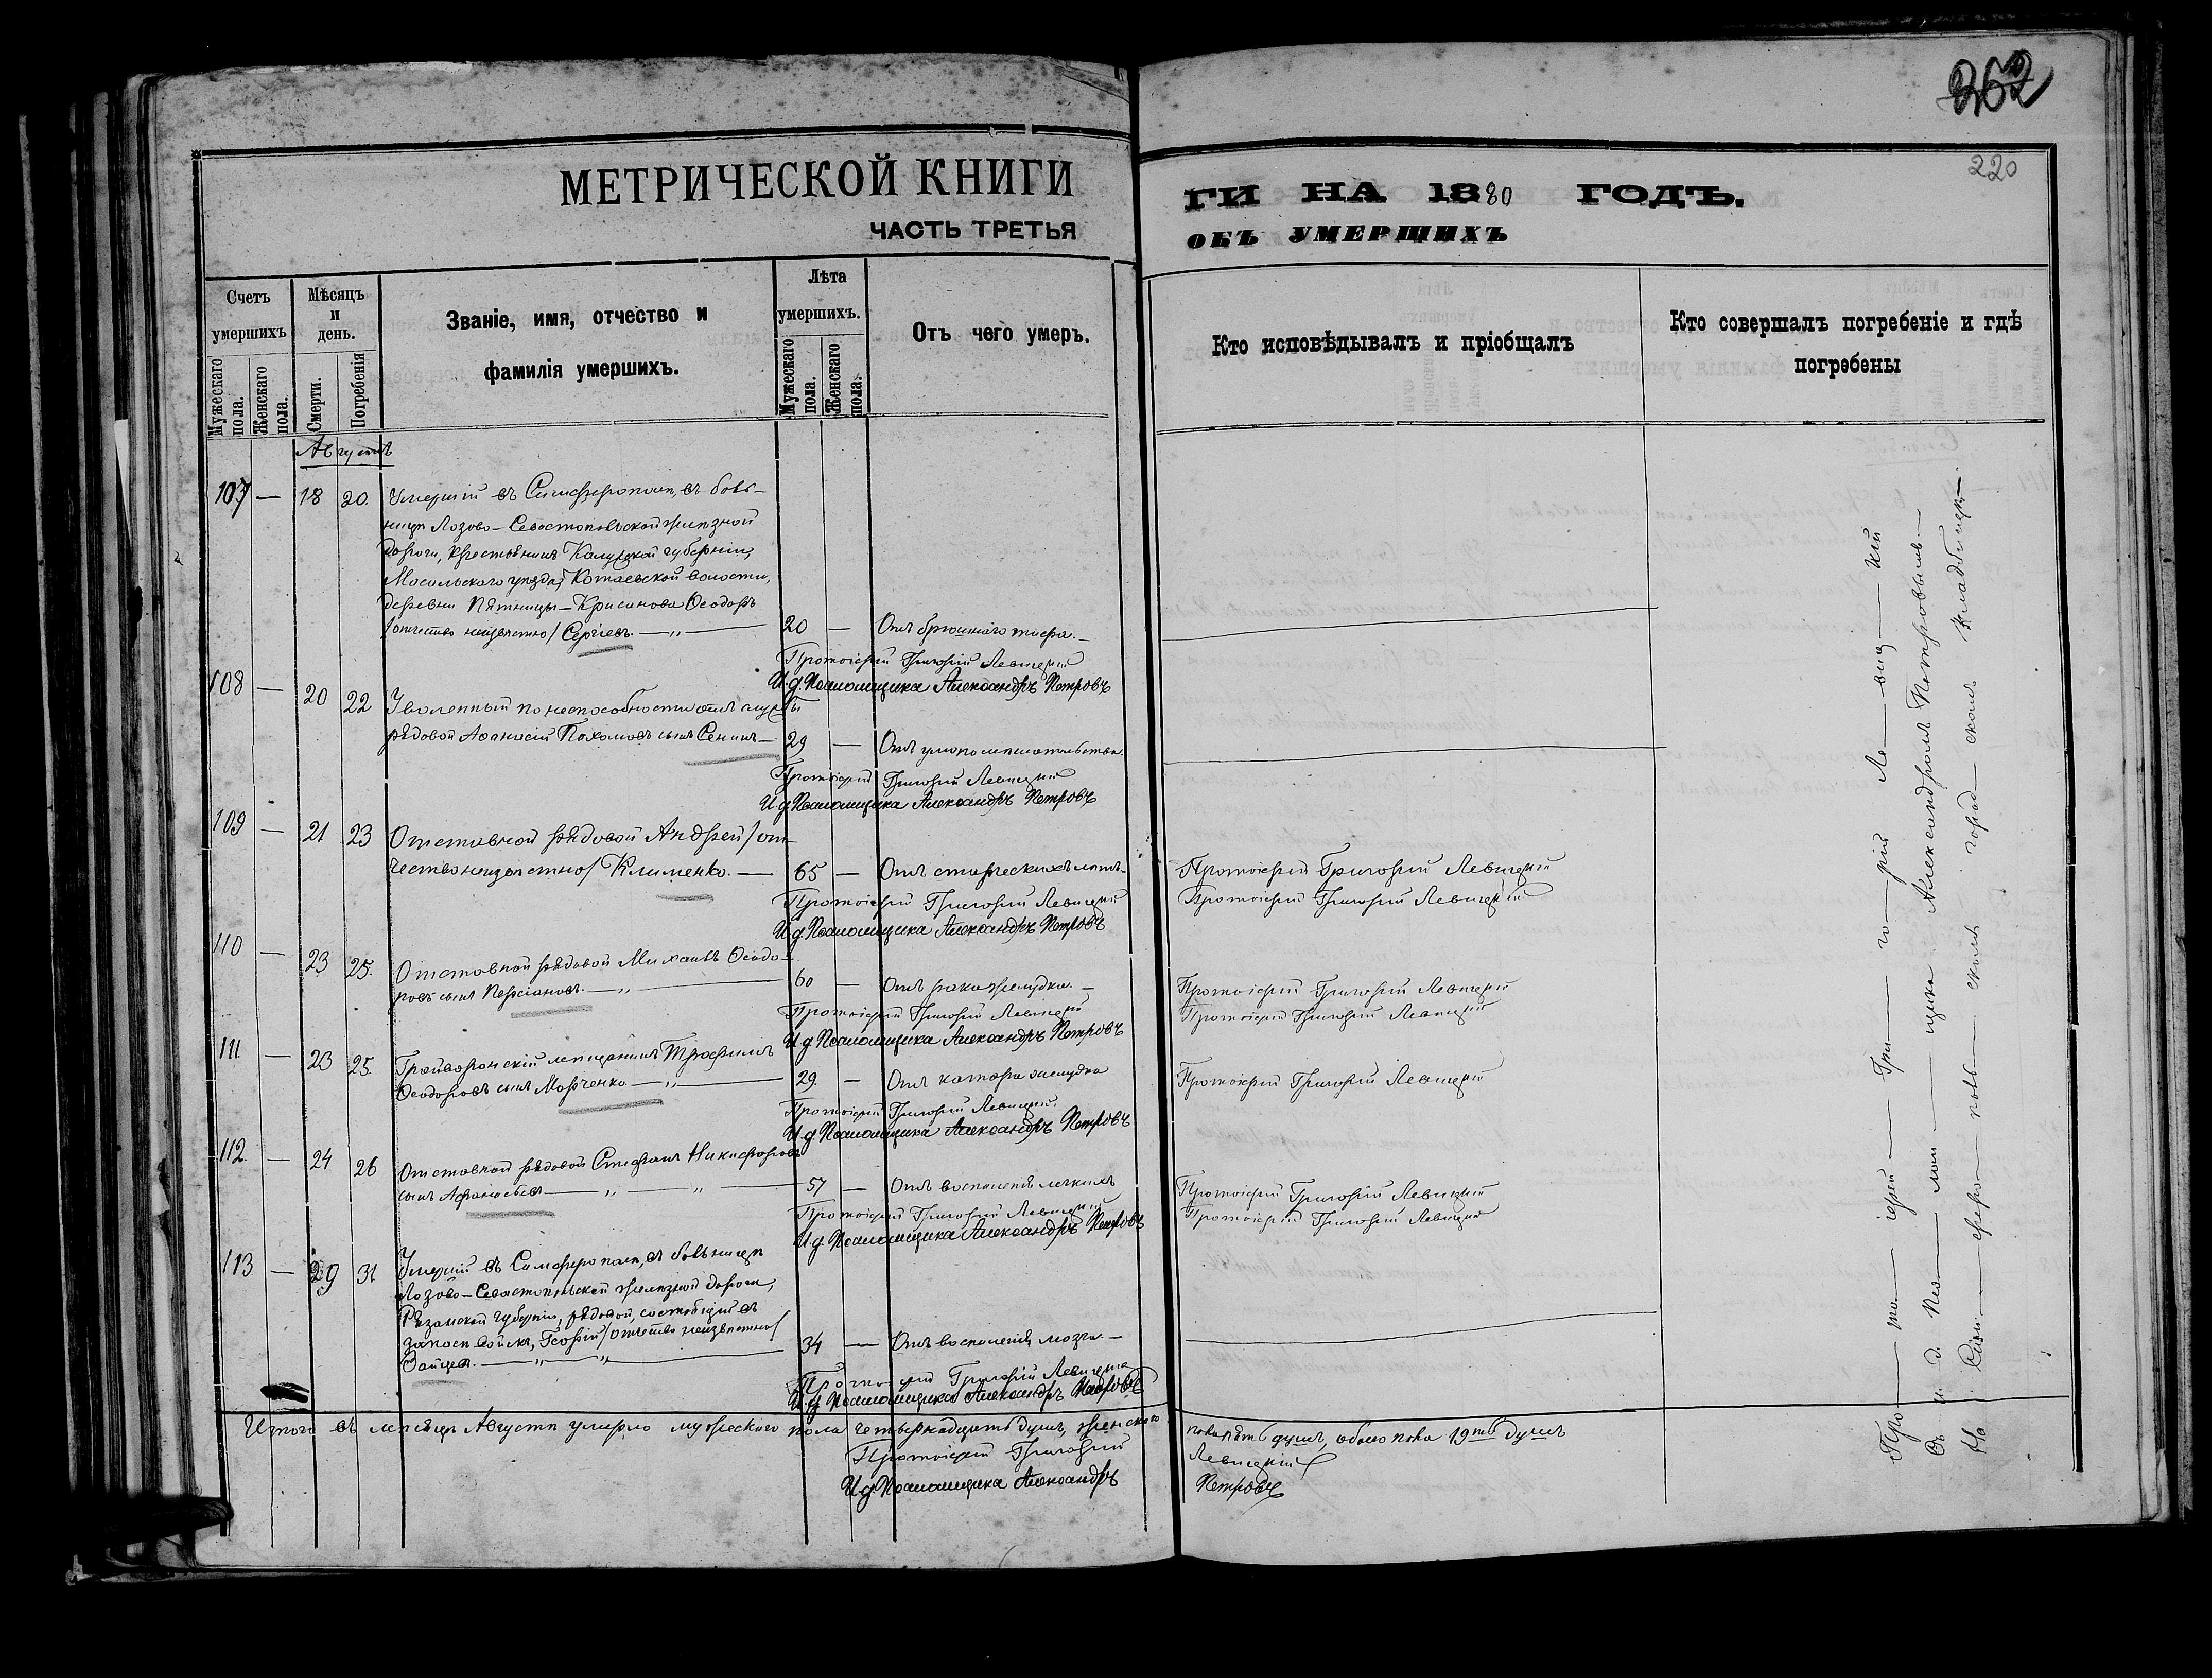 262
220
МЕТРИЧЕСКОЙ КНИГИ
ЧАСТЬ ТРЕТЬЯ
ГИ НА 1880 ГОДЪ.
ОБЪ УМЕРШИХЪ
Счетъ умершихъ
Мужескаго пола.
Женскаго пола.
Мѣсяцъ и день.
Смерти.
Погребенія
Званіе, имя, отчество и фамилія умершихъ.
Лѣта умершихъ.
Мужескаго пола.
Женскаго пола.
Отъ чего умеръ.
Кто исповѣдывалъ и пріобщалъ
Кто совершалъ погребеніе и гдѣ погребены
Августъ
107 — 18 20. Умершій въ Симферополѣ, въ боль-
ницѣ Лозово-Севастопольской желѣзной
дороги, крестьянинъ Калужской губерніи,
Мосальскаго уѣзда, Котаевской волости,
деревни Пятницы-Крисанова Ѳеодоръ
/отчество неизвѣстно/ Сергіевъ. —„— 20 — Отъ брюшнаго тифа. —
Протоіерей Григорій Левицкій
И. д. Псаломщика Александръ Петровъ
108 — 20 22 Уволенный по неспособности отъ службы
рядовой Аѳанасій Пахомовъ сынъ Сенинъ — 29 — Отъ умопомѣшательства.
Протоіерей Григорій Левицкій
И. д. Псаломщика Александръ Петровъ
109 — 21 23 Отставной рядовой Андрей /от-
чество неизвѣстно/ Клименко. — 65 — Отъ старческихъ лѣтъ. Протоіерей Григорій Левицкій
Протоіерей Григорій Левицкій Протоіерей Григорій Левицкій
И. д. Псаломщика Александръ Петровъ
110 — 23 25. Отставной рядовой Михаилъ Ѳеодо-
ровъ сынъ Персіановъ. —„— 60 — Отъ рака желудка. — Протоіерей Григорій Левицкій
Протоіерей Григорій Левицкій Протоіерей Григорій Левицкій
И. д. Псаломщика Александръ Петровъ
111 — 23 25. Грайворонскій мѣщанинъ Трофимъ
Ѳеодоровъ сынъ Марченко —„— 29 — Отъ катара желудка Протоіерей Григорій Левицкій
Протоіерей Григорій Левицкій
И. д. Псаломщика Александръ Петровъ
112. — 24 26 Отставной рядовой Стефанъ Никифоровъ
сынъ Афанасьевъ —„—„— 57 — Отъ воспаленія легкихъ Протоіерей Григорій Левицкій
Протоіерей Григорій Левицкій Протоіерей Григорій Левицкій
И. д. Псаломщика Александръ Петровъ
113 — 29 31 Умершій въ Симферополѣ, въ больницѣ
Лозово-Севастопольской желѣзной дороги,
Рязанской губерніи, рядовой, состоящій въ
запасѣ войскъ, Георгій /отчество неизвѣстно/
Зайцевъ. —„—„— 34 — Отъ воспаленія мозга. —
Протоіерей Григорій Левицкій
И. д. Псаломщика Александръ Петровъ
Итого въ мѣсяцѣ Августѣ умерло мужескаго пола четырнадцать душъ, женскаго
пола пять душъ, обоего пола 19ть душъ
Протоіерей Григорій Левицкій
И. д. Псаломщика Александръ Петровъ
Про—то—іерей — Гри—го—рій Ле—виц—кій
съ и. д. Пса—лом—щика Александромъ Петровымъ —
На Сим—феро—поль—скомъ город—скомъ кладбищѣ —